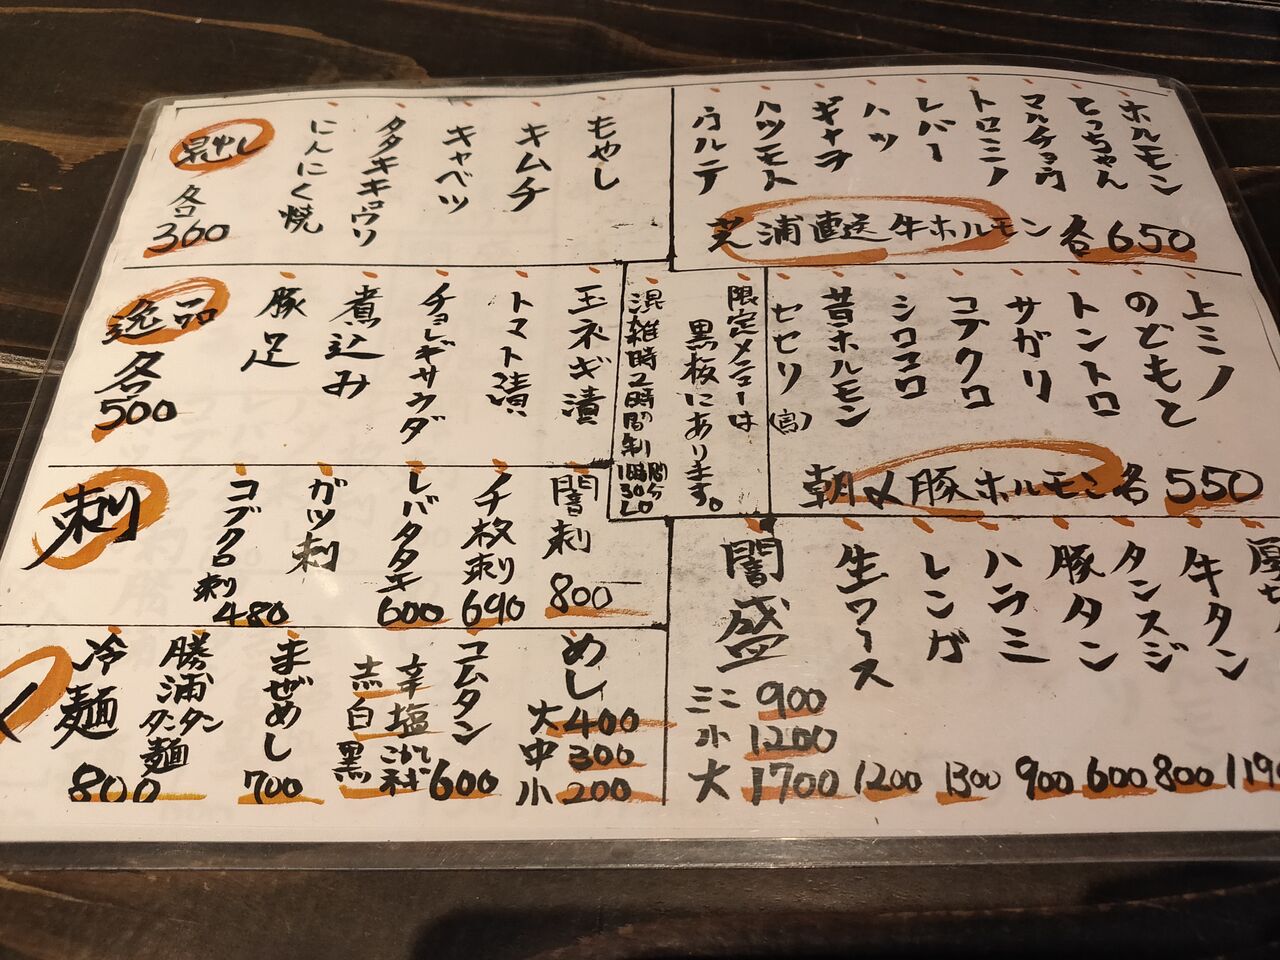 ホルモン
てっちゃん
マルチョウ
トロミノ
レバー
ハツ
ギャラ
ハツモト
ウルテ
芝浦直送牛ホルモン 各650
もやし
キムチ
キャベツ
タタキキュウリ
にんにく焼
各
360
上ミノ
のどもと
トントロ
サガリ
コブクロ
シロコロ
昔ホルモン
セセリ(宮)
朝〆豚ホルモン各550
限定メニューは
黒板にあります。
混雑時2時間制
1時間30分LO
玉ネギ漬
トマト漬
チョレギサラダ
煮込み
豚足
逸品
各
500
闇刺
800
ノチ枚刺
690
レバタタキ
600
ガツ刺
コブクロ刺
480
刺
牛タン
1190
タンスジ
800
豚タン
600
ハラミ
900
レンガ
1300
生ワース
1200
闇盛
ミニ 900
小 1200
大 1700
めし
大400
中300
小200
コムタン
600
辛塩
赤白黒
まぜめし
700
勝浦タンタン麺
冷麺
800